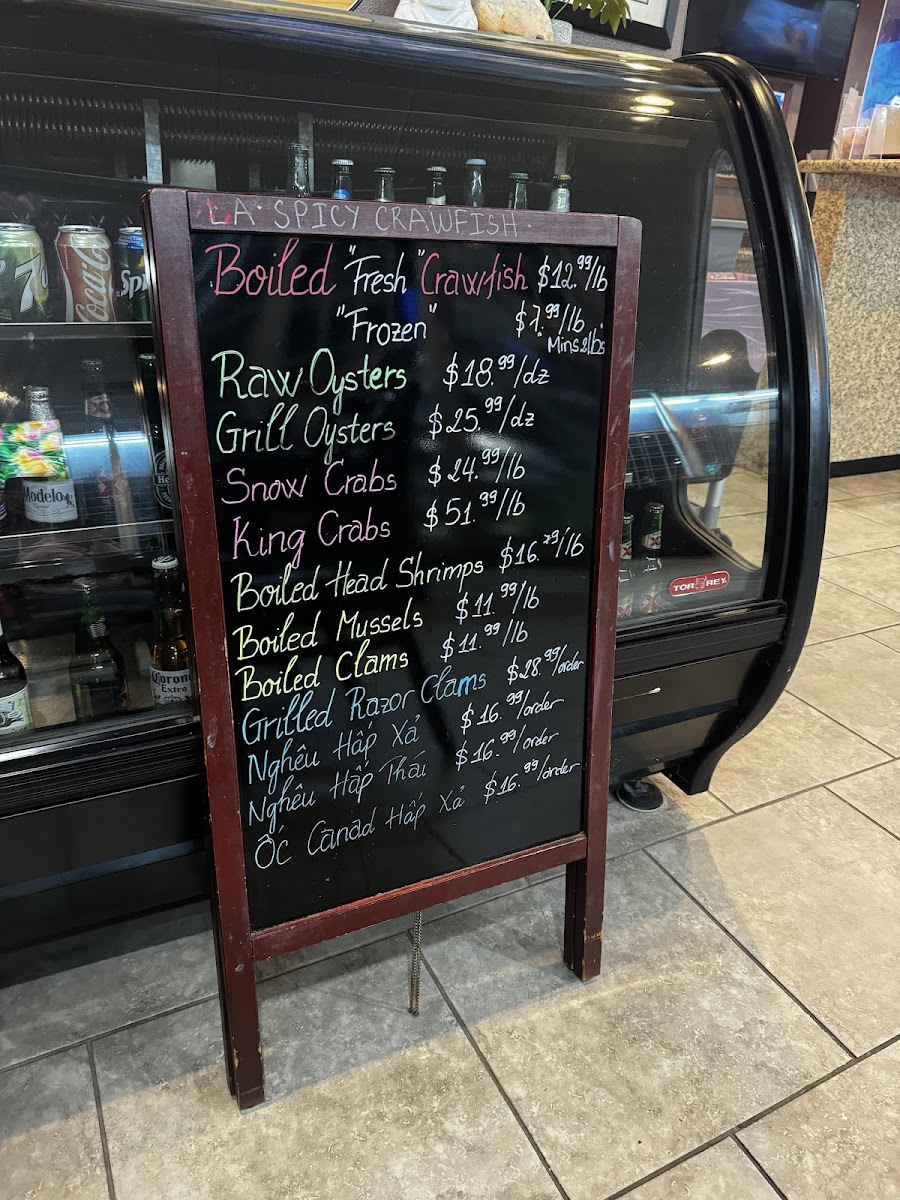 LA SPICY CRAWFISH
Boiled "Fresh" Crawfish $12.99/lb
"Frozen" $7.99/lb
Mins 2lbs
Raw Oysters $18.99/dz
Grill Oysters $25.99/dz
Snow Crabs $24.99/lb
King Crabs $51.99/lb
Boiled Head Shrimps $16.79/lb
Boiled Mussels $11.99/lb
Boiled Clams $11.99/lb
Grilled Razor Clams $28.99/order
Nghêu Hấp Xả $16.99/order
Nghêu Hấp Thái $16.99/order
Ốc Canad Hấp Xả $16.99/order
7
Coca-Cola
Spri
Modelo
Corona
Extra
TORREY